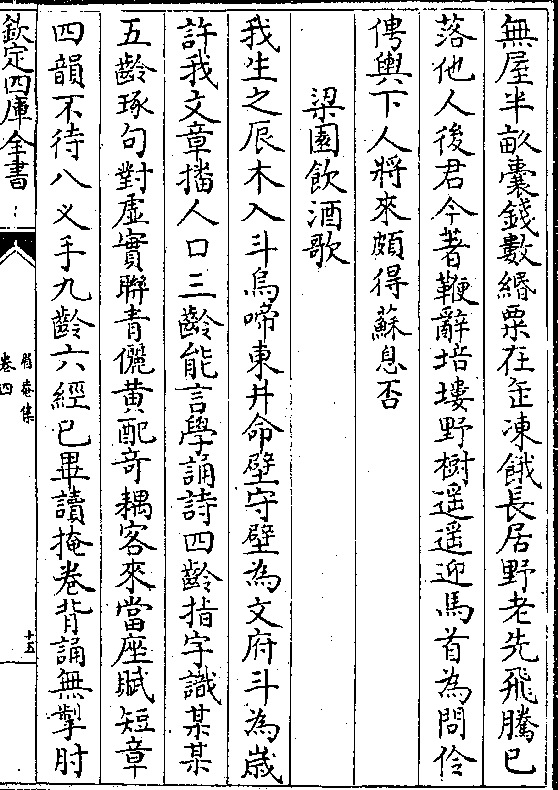 無屋半畝囊錢數緡粟在缶凍餓長居野老先飛騰已
落他人後君今著鞭辭培塿野樹遥遥迎馬首為問伶
俜輿下人將來頗得蘇息否
梁園飲酒歌
我生之辰木入斗烏啼東井命壁守壁為文府斗為嵗
許我文章播人口三齡能言學誦詩四齡指字識某某
五齡琢句對虛實聯青儷黄配竒耦客來當座賦短章
四韻不待八义手九齡六經已畢讀掩卷背誦無掣肘
欽定四庫全書
眉菴集
卷四
十五